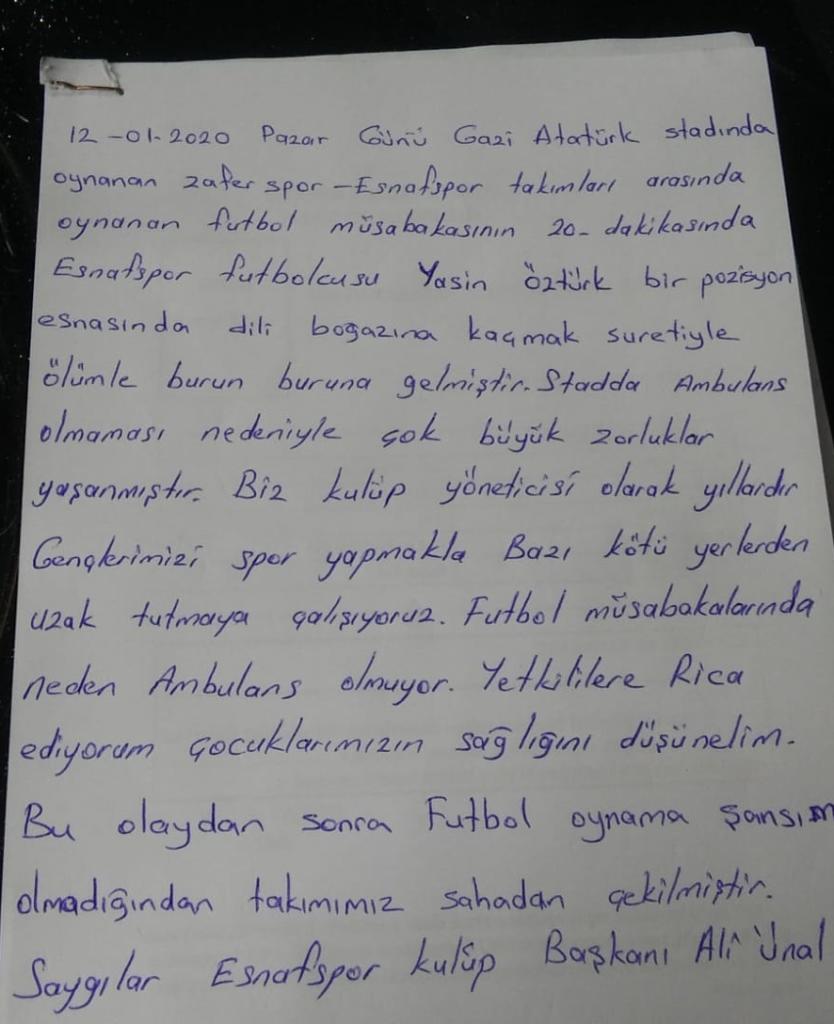 12-01-2020 Pazar Günü Gazi Atatürk stadında
oynanan zafer spor-Esnafspor takımları arasında
oynanan futbol müsabakasının 20- dakikasında
Esnafspor futbolcusu Yasin öztürk bir pozisyon
esnasında dili boğazına kaçmak suretiyle
ölümle burun buruna gelmiştir. Stadda Ambulans
olmaması nedeniyle çok büyük zorluklar
yaşanmıştır. Biz kulüp yöneticisi olarak yıllardır
Gençlerimizi spor yapmakla Bazı kötü yerlerden
uzak tutmaya çalışıyoruz. Futbol müsabakalarında
neden Ambulans olmuyor. Yetkililere Rica
ediyorum çocuklarımızın sağlığını düşünelim.
Bu olaydan sonra Futbol oynama şansım
olmadığından takımımız sahadan çekilmiştir.
Saygılar Esnafspor kulüp Başkanı Ali Ünal